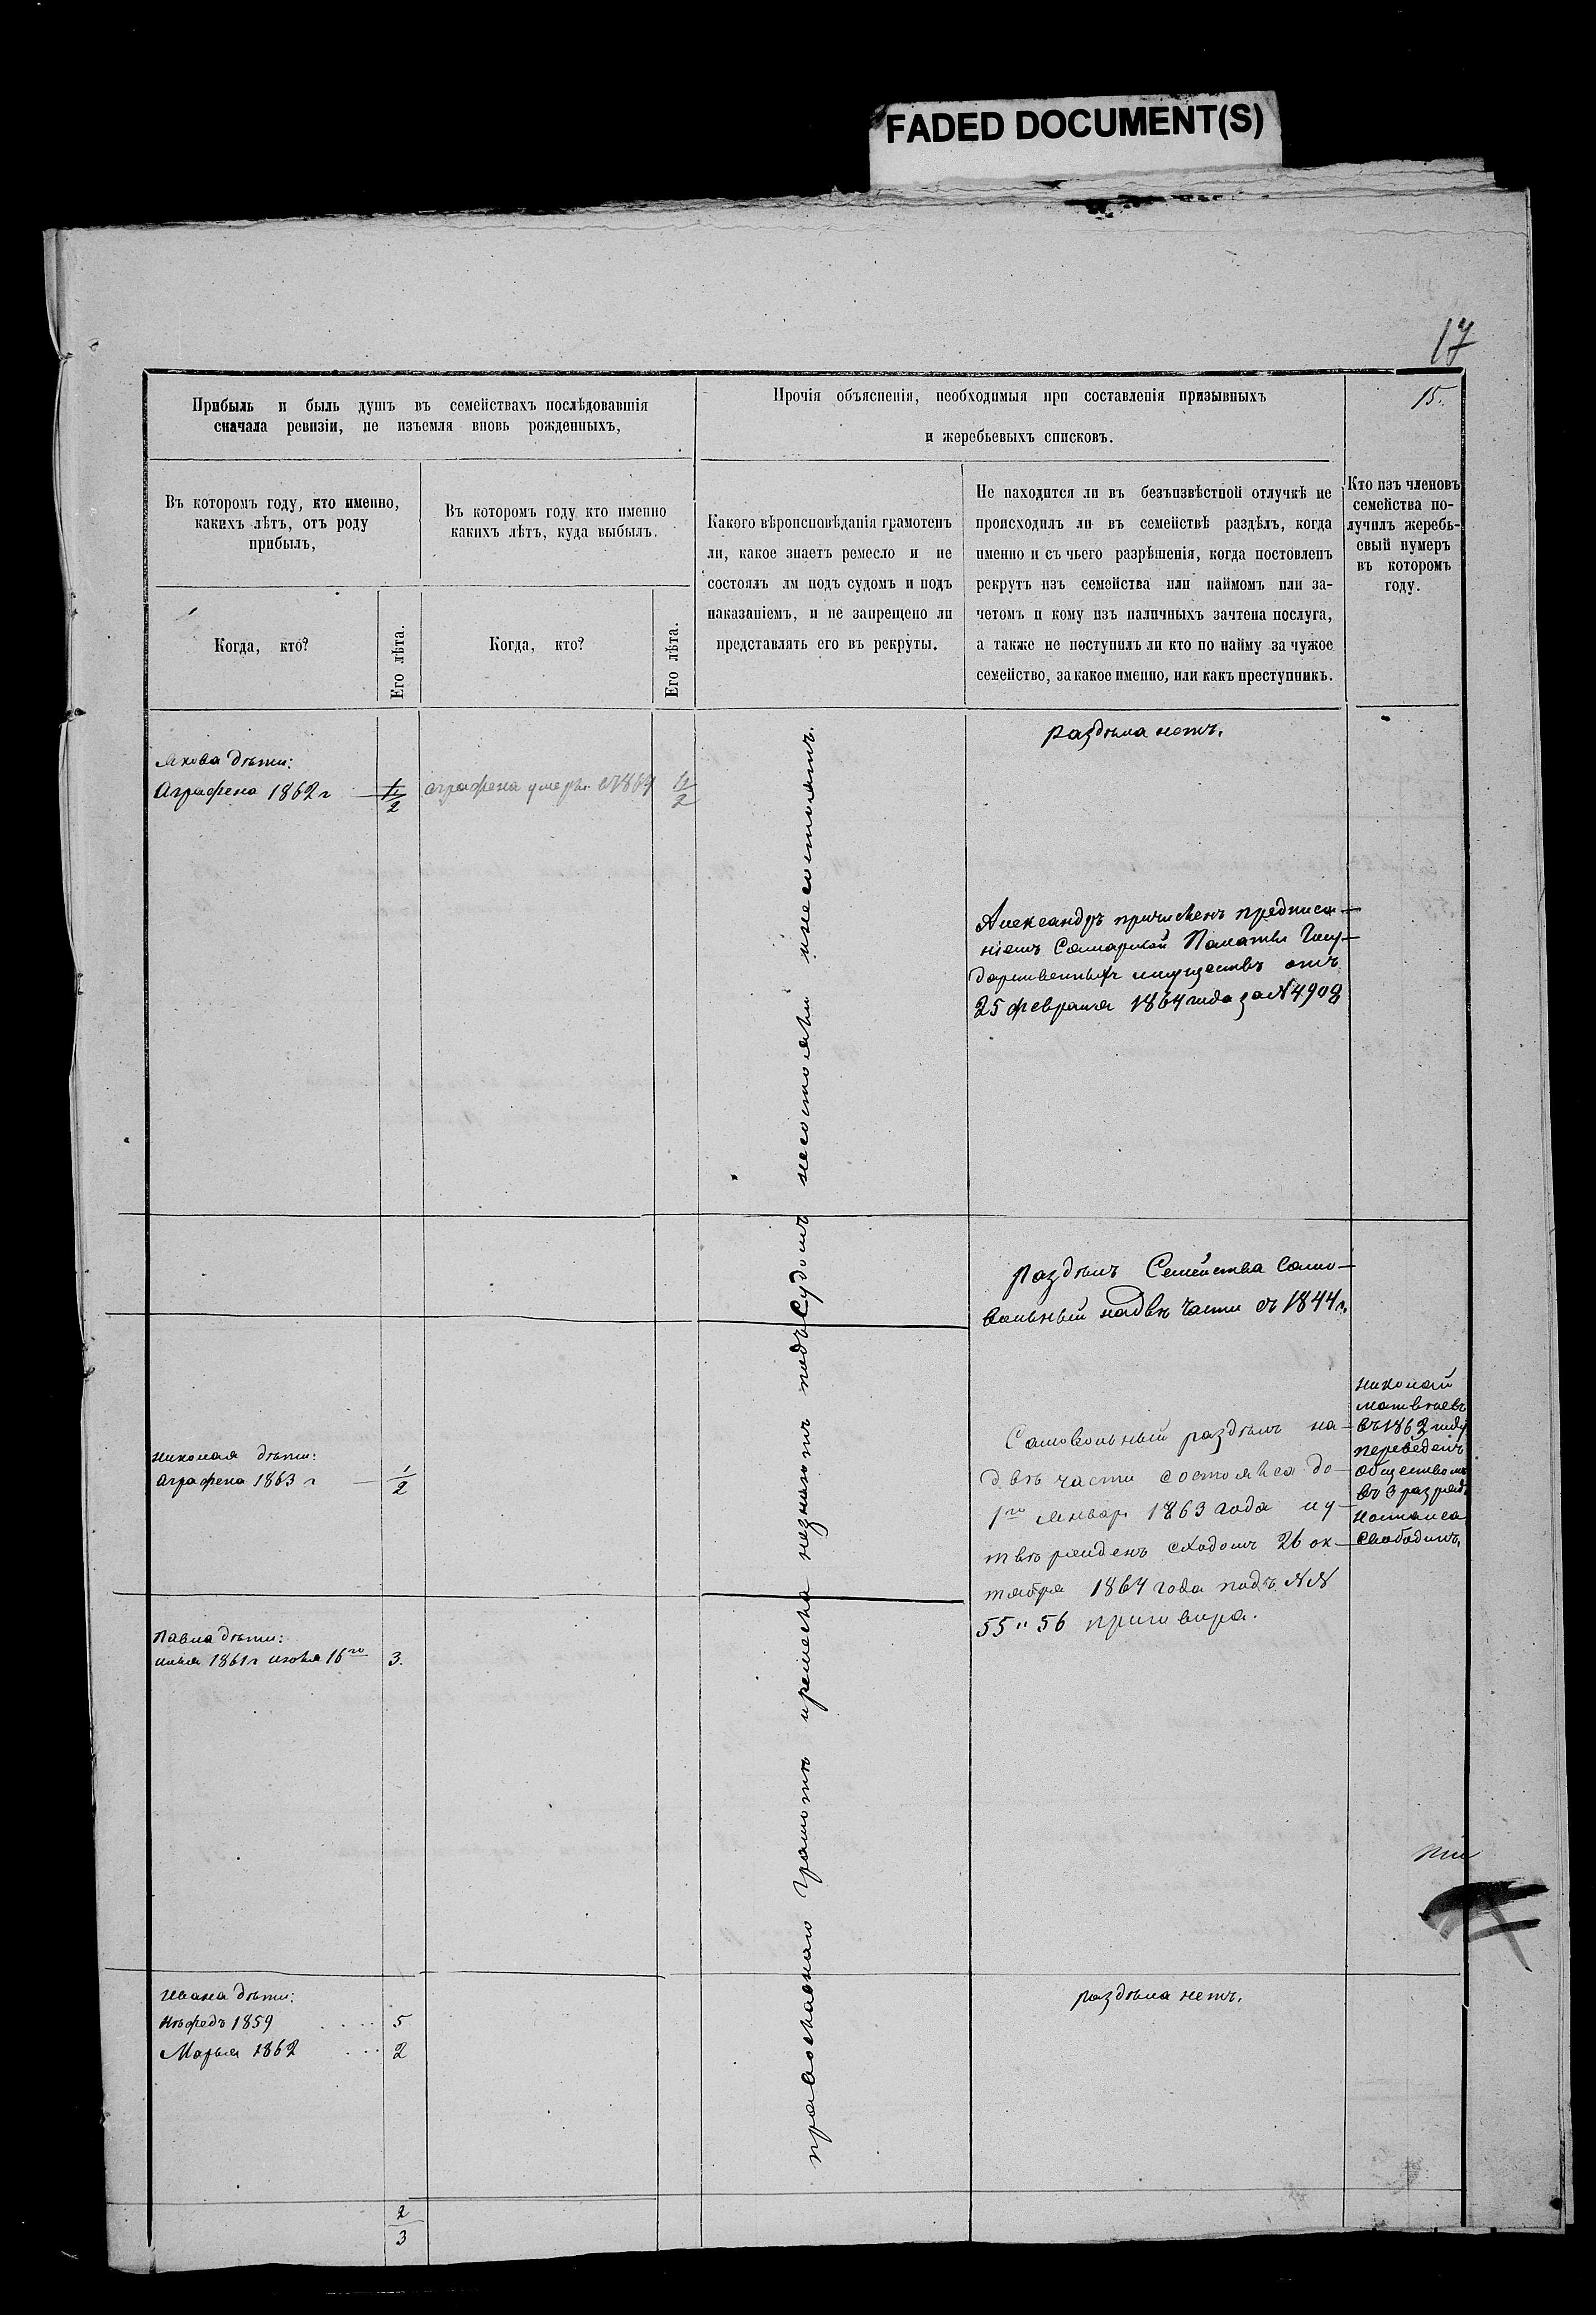 FADED DOCUMENT(S)
17
Прибыль и быль душъ въ семействахъ послѣдовавшія
сначала ревизіи, не изъемля вновь рожденныхъ,
Прочія объясненія, необходимыя при составленія призывныхъ
и жеребьевыхъ списковъ.
15.
Въ которомъ году, кто именно,
какихъ лѣтъ, отъ роду
прибылъ,
Въ которомъ году кто именно
какихъ лѣтъ, куда выбылъ.
Какого вѣроисповѣданія грамотенъ
ли, какое знаетъ ремесло и не
состоялъ лм подъ судомъ и подъ
наказаніемъ, и не запрещено ли
представлять его въ рекруты.
Не находится ли въ безъизвѣстной отлучкѣ не
происходилъ ли въ семействѣ раздѣлъ, когда
именно и съ чьего разрѣшенія, когда постовленъ
рекрутъ изъ семейства или наймомъ или за-
четомъ и кому изъ наличныхъ зачтена послуга,
а также не поступилъ ли кто по найму за чужое
семейство, за какое именно, или какъ преступникъ.
Кто изъ членовъ
семейства по-
лучилъ жеребь-
евый нумеръ
въ которомъ
году.
Когда, кто?
Его лѣта.
Когда, кто?
Его лѣта.
Якова дѣти:
Аграфена 1862 г
2
аграфена умерла въ 1864
2
раздѣла нетъ.
Александръ причисленъ предписа-
ніемъ Самарской Палаты Госу-
дарственныхъ имуществъ отъ
25 февраля 1864 года за № 4908
православнаго грамотѣ иремесла незнаютъ подъ Судомъ несостояли инесостоятъ.
раздѣлъ Семейства Само-
вольный надвѣ части съ 1844 г.
Самовольный раздѣлъ на-
двѣ части состоялся до
1го Январ. 1863 года и у-
твѣржденъ сходомъ 26 ок-
тября 1864 года подъ №№
55 и 56 приговора.
николай
матвѣевъ
въ 1862 году
переведенъ
обществомъ
въ 3 разряд
Николая дѣти:
аграфена 1863 г
1
2
Павла дѣти:
илья 1861 г июля 16го
3.
Ивана дѣти:
1859
5
Марья 1862
2
раздѣла нетъ.
2
3